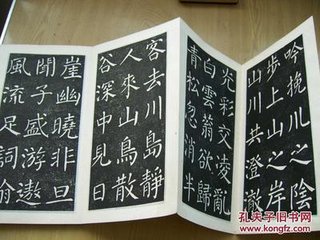 吟挽川之陰
步上山之岸
山川共澄澈
光彩交凌亂
白雲蓊欲歸
青松忽消半
客去川島靜
人來山鳥散
谷深中見日
崖幽曉非旦
聞子盛游遨
風流足詞
孔夫子旧书网